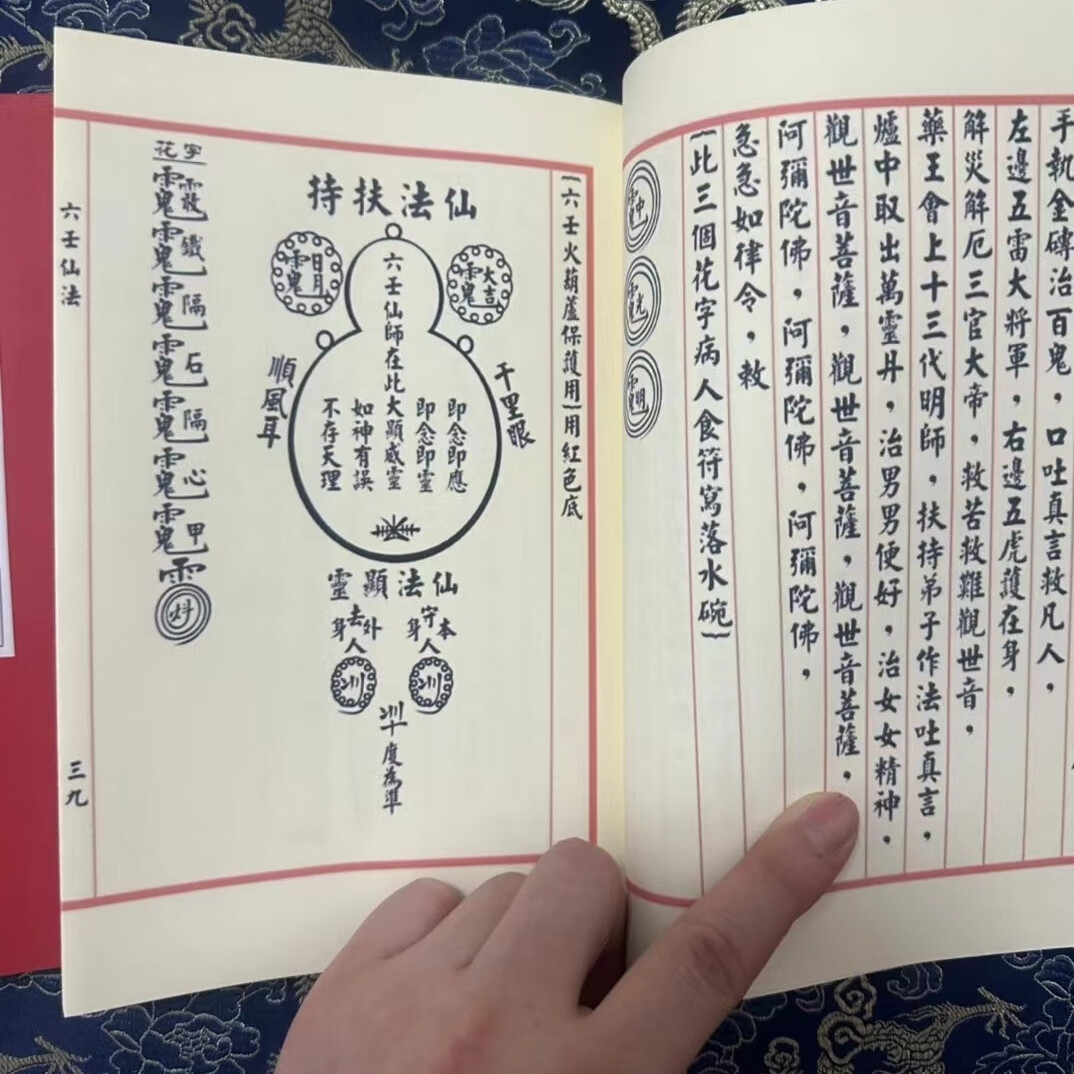 手執金磚治百鬼，口吐真言救凡人，
左邊五雷大將軍，右邊五虎護在身，
解災解厄三官大帝，救苦救難觀世音，
藥王會上十三代明師，扶持弟子作法吐真言，
爐中取出萬靈丹，治男男便好，治女女精神，
觀世音菩薩，觀世音菩薩，觀世音菩薩，
阿彌陀佛，阿彌陀佛，阿彌陀佛，
急急如律令，敕
(此三個花字病人食符寫落水碗)
中
光
明
(六壬火葫蘆保護用)用紅色底
仙法扶持
大吉
日月
千里眼
順風耳
六壬仙師在此大顯威靈
即念即應
即念即靈
如神有誤
不存天理
仙法顯靈
守本人身
去外人身
度為準
花字
鐵
隔
石
隔
心
甲
六壬仙法
三九